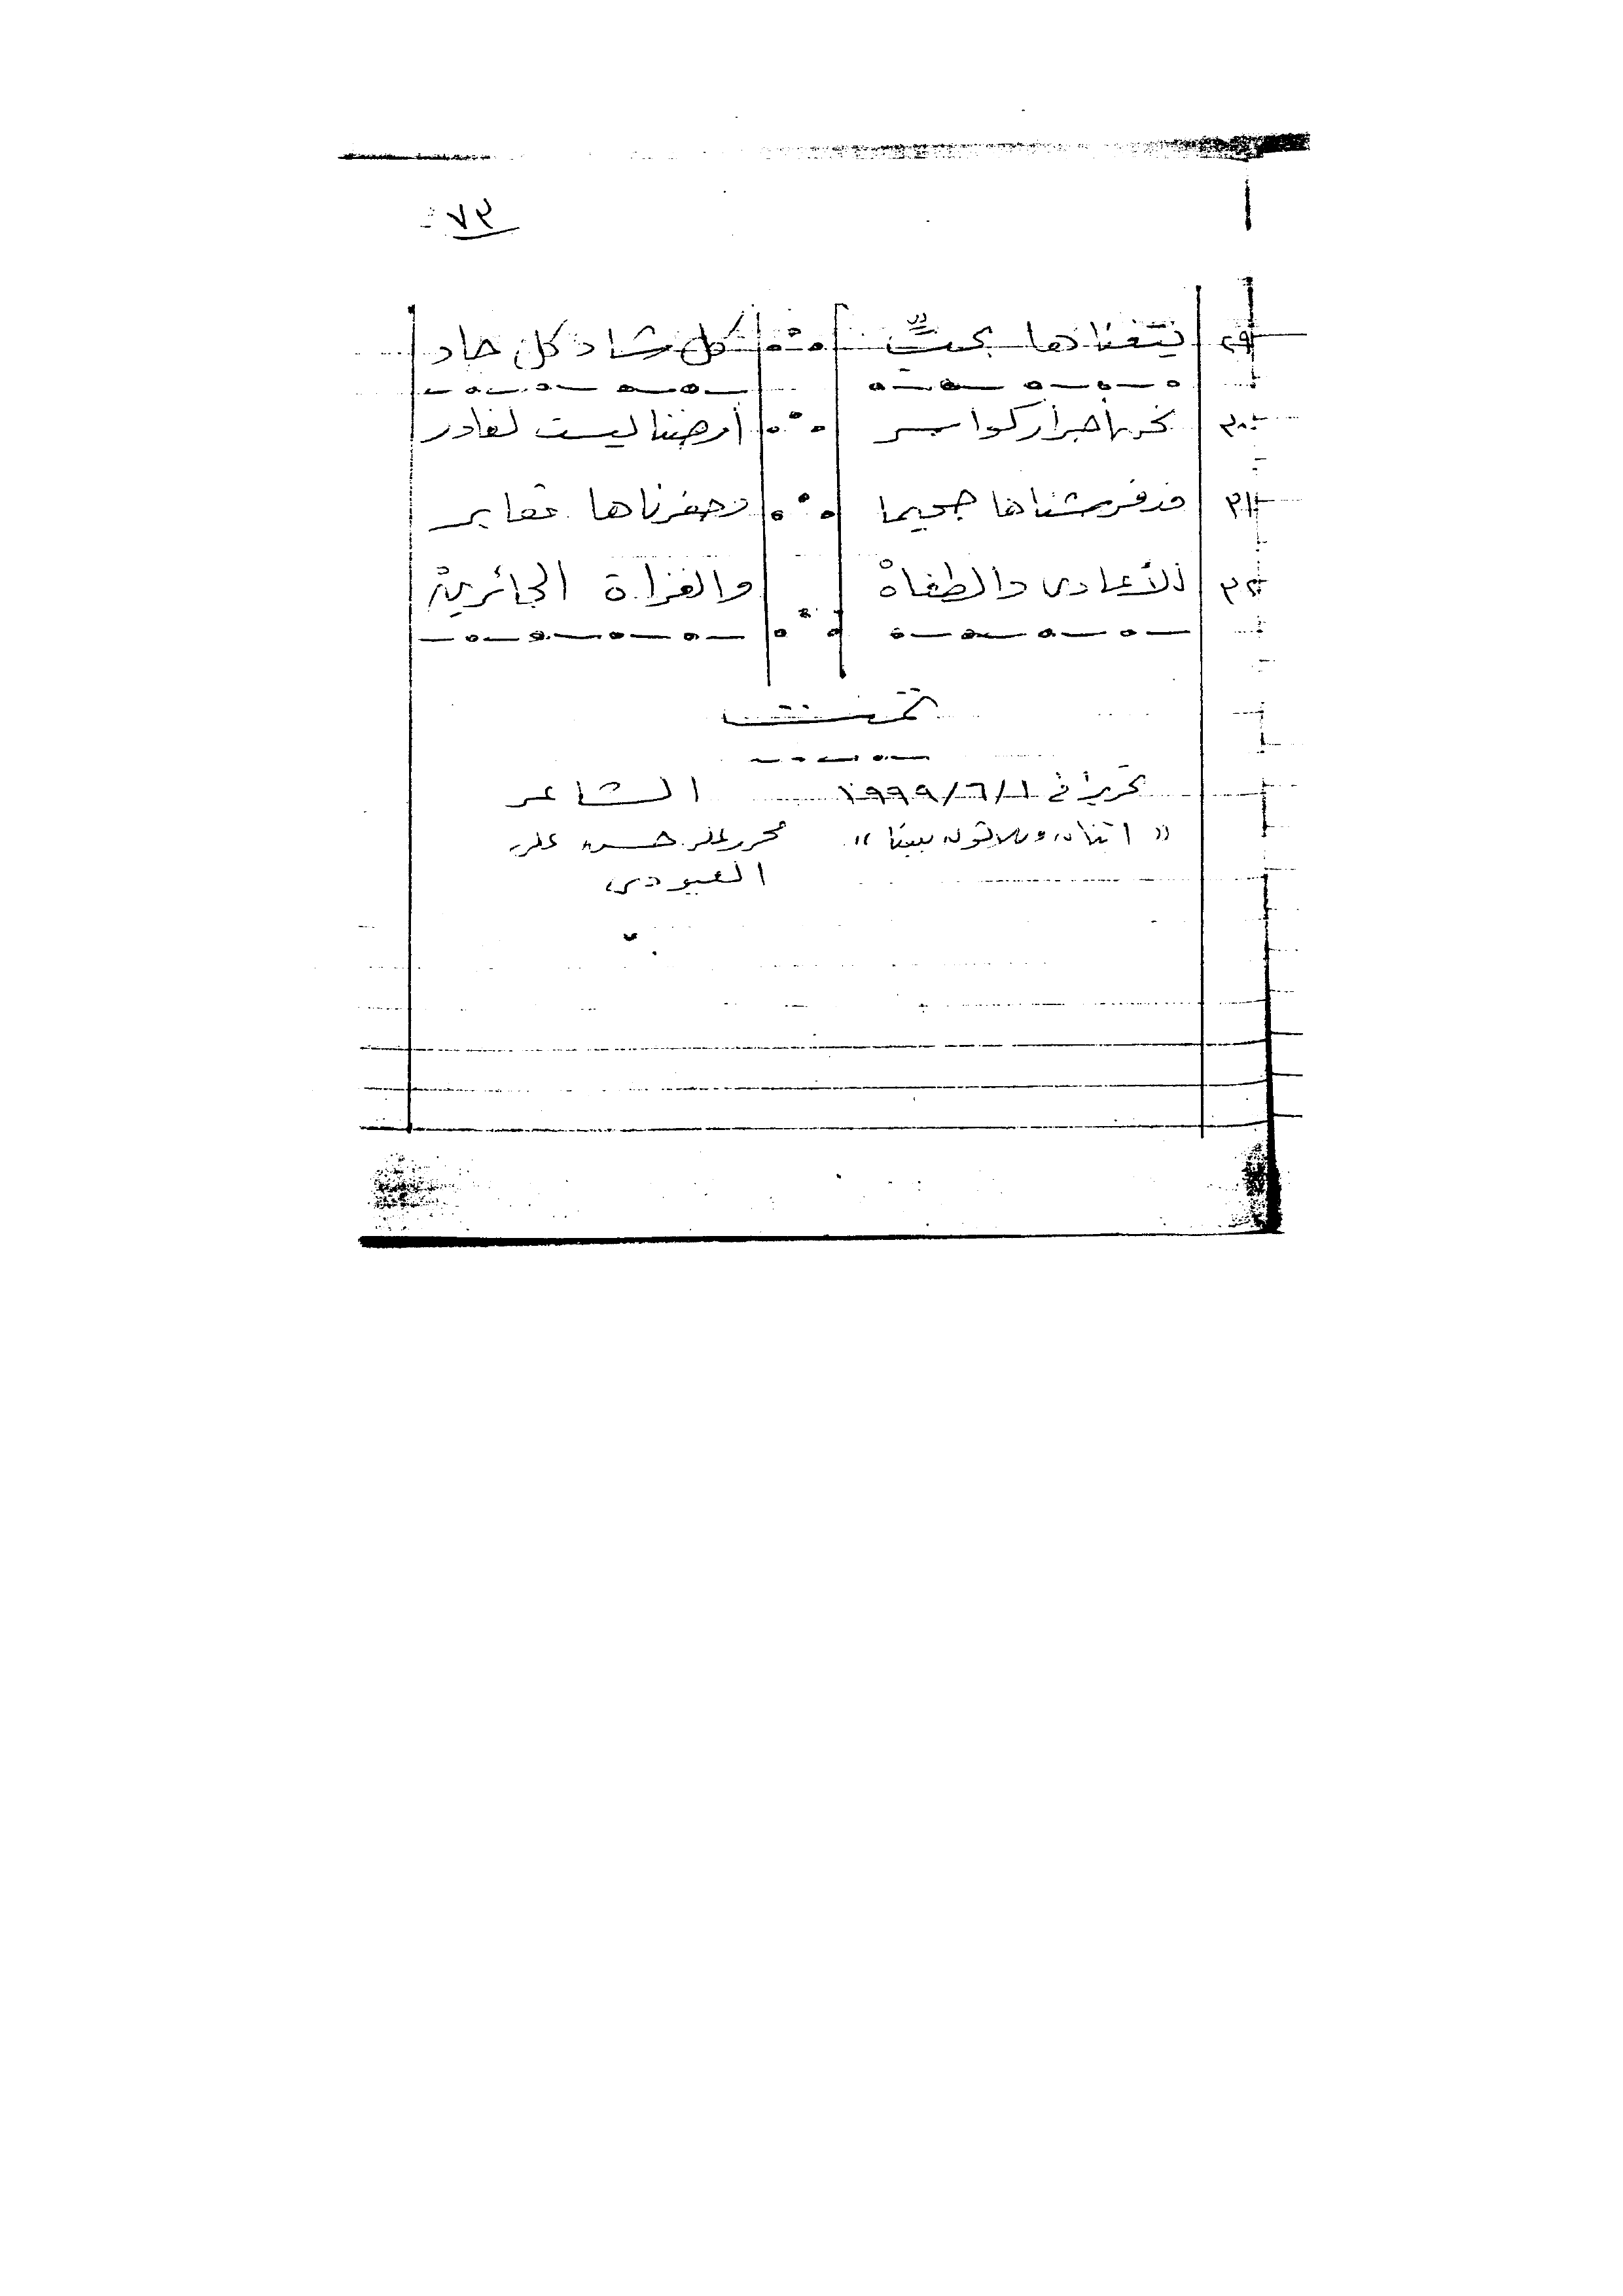 ٧٣
٢٩ يتغناها بحبٍّ كل شاد كل حاد
٣٠ نحن أحرار كواسر أرضنا ليست لغادر
٣١ قد فرشناها جحيما وحفرناها مقابر
٣٢ للأعادي والطغاة والغزاة الجائرين
تمت
تحريرا في ١/٦/١٩٩٩ الشاعر
"اثنان وثلاثون بيتا" حسن علي
العبودي